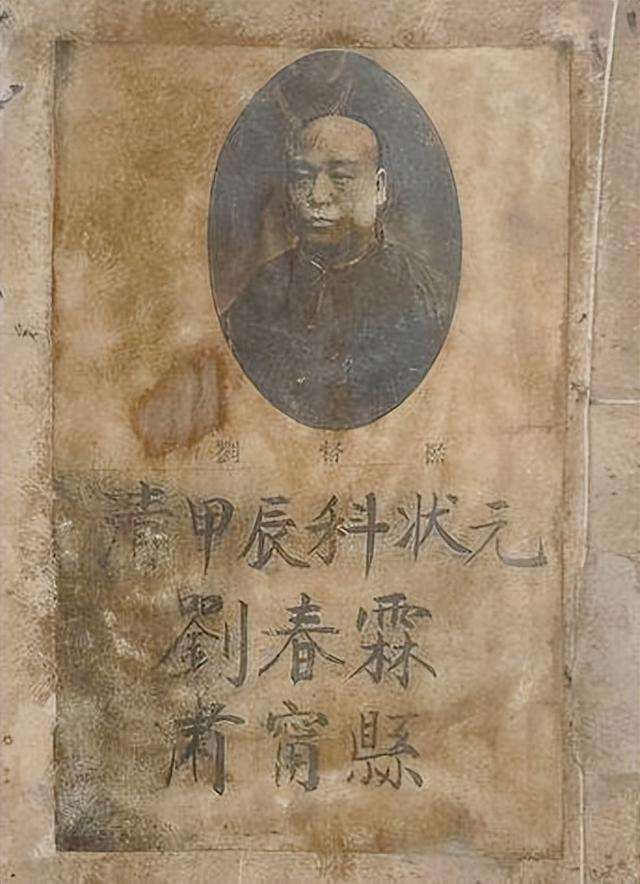 劉督監
清甲辰科狀元
劉春霖
肅甯縣